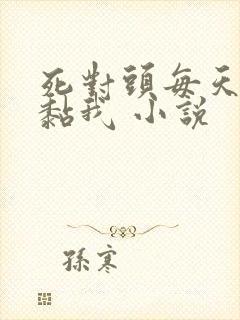 死對頭每天
黏我 小說
孫寒